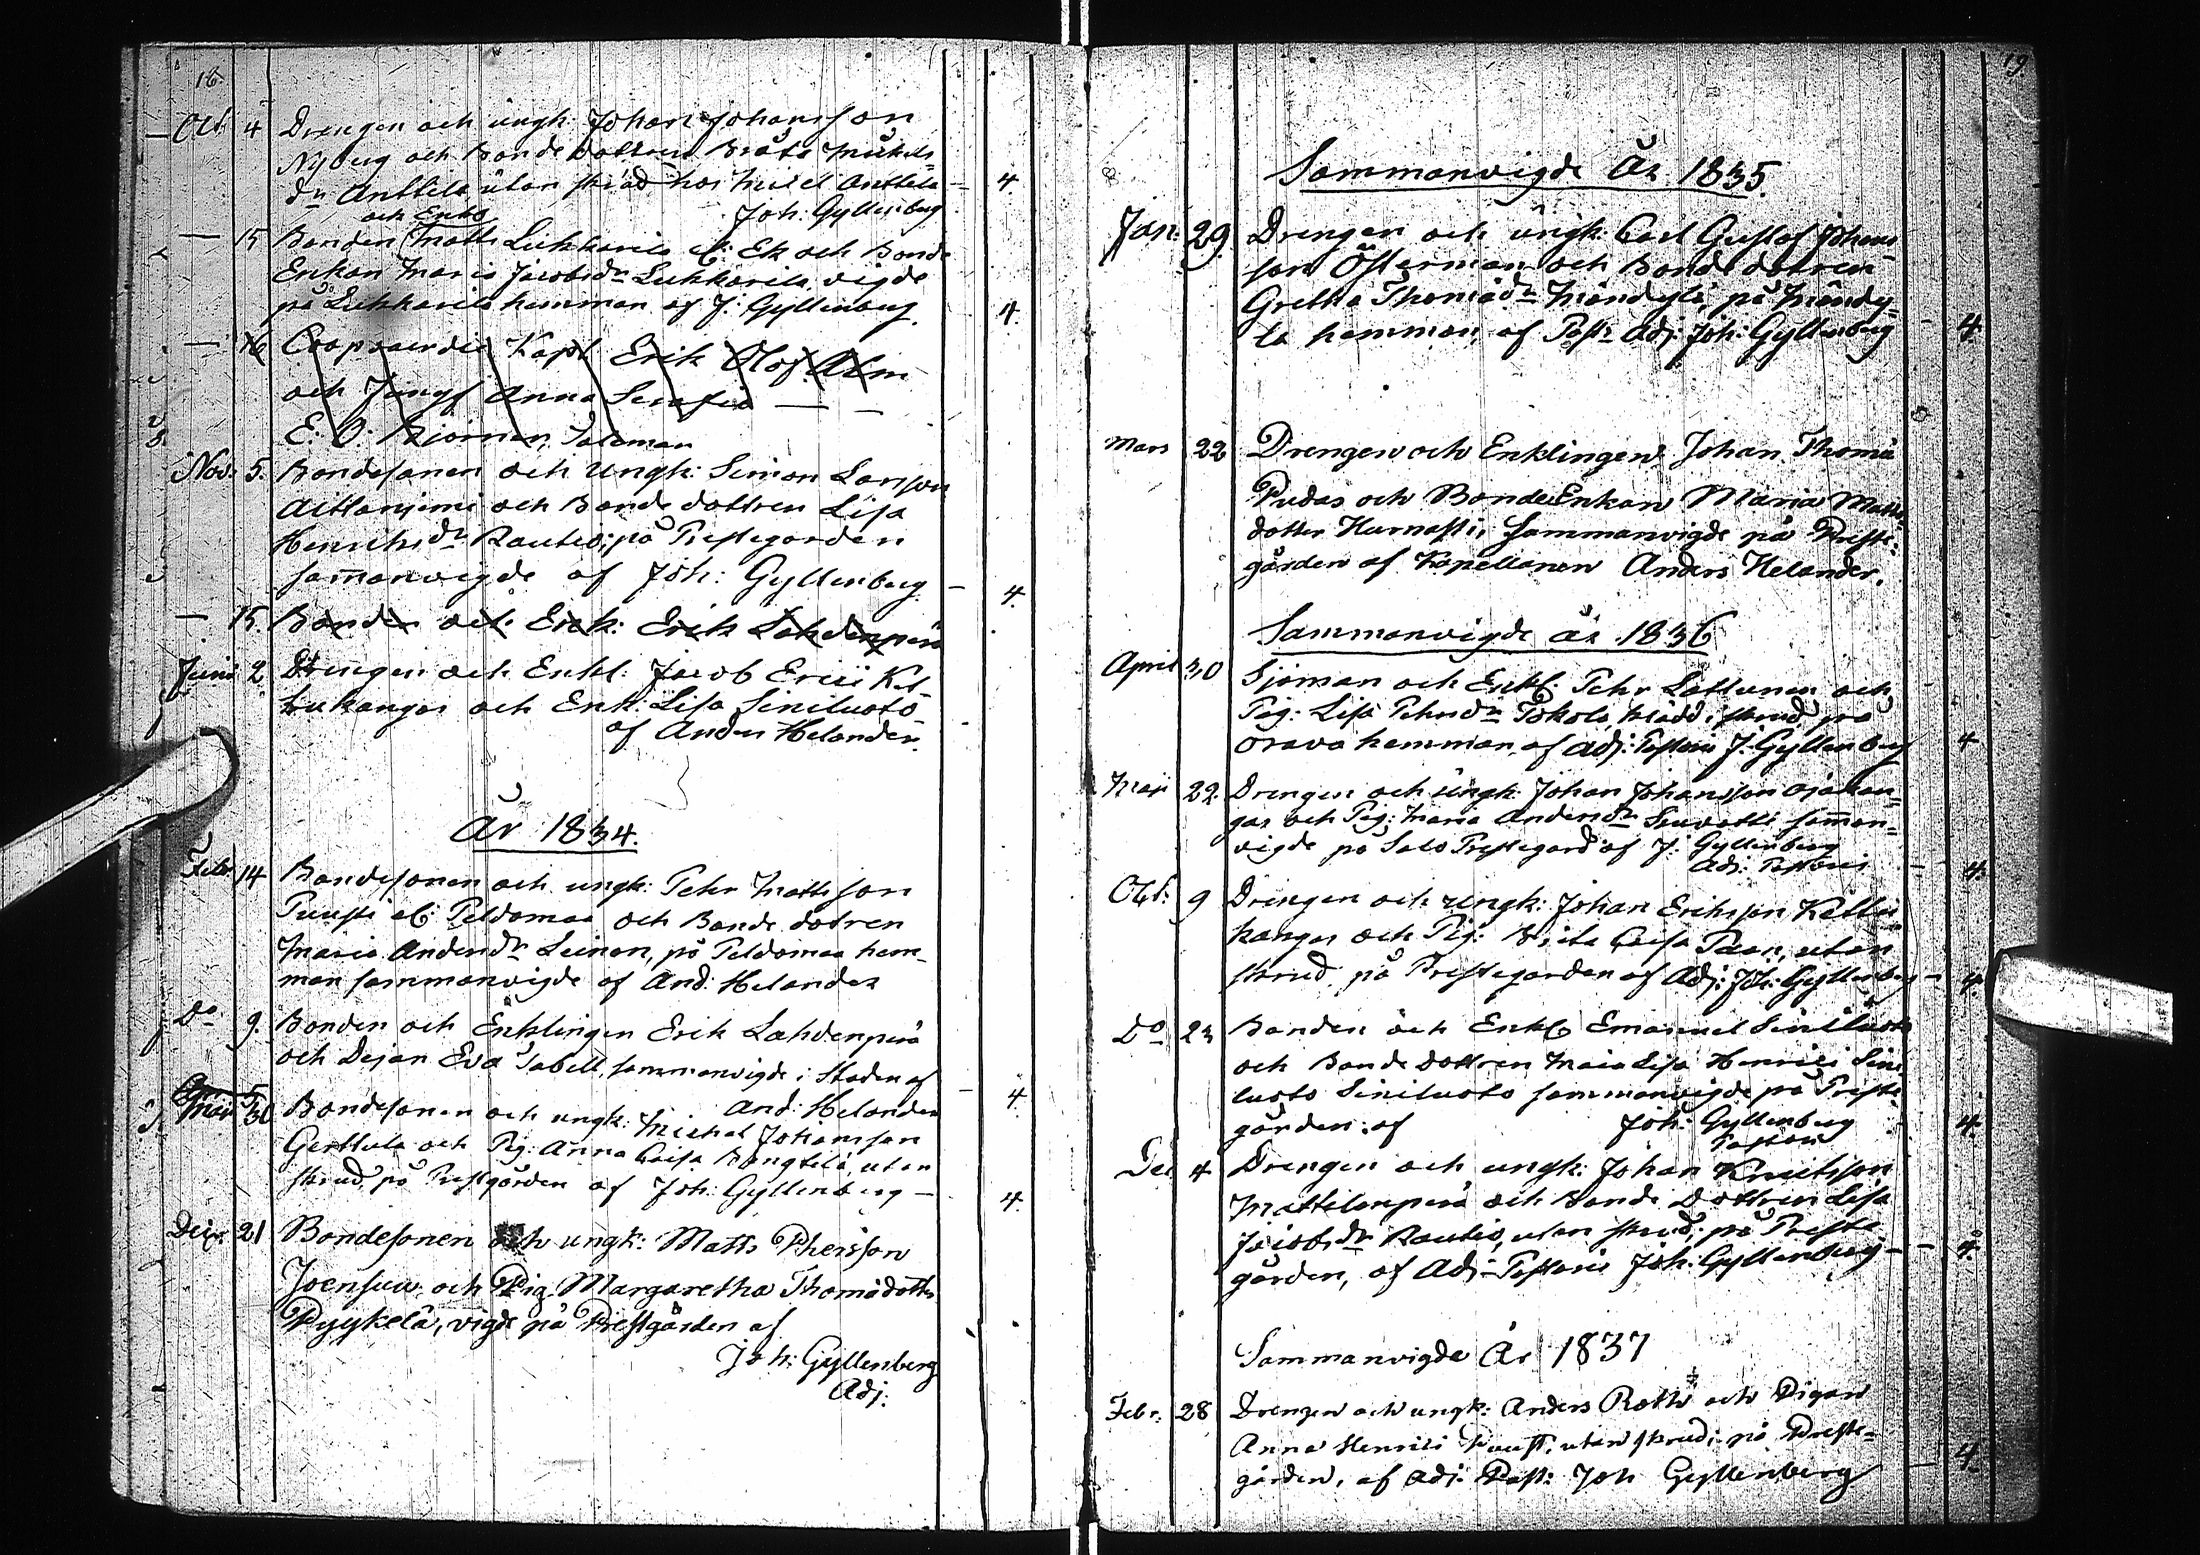 18
Oct. 4 Drengen och ungk: Johan Johansson
Nyberg och Bonde dottren Brita Mickels-
dr Anttila utan skrud hos Anttila 4.
Joh: Gyllenberg
och Enkl.
— 15 Bonden Matts Lukkarila Ek och Bonde
Enkan Maria Jacobsdr Lukkarila, vigde
på Lukkarila hemman af J: Gyllenberg. 4.
— 16 Coopvaerdie Kapt Erik Olof Alm
och Jungf Anna Serafia — —
E: O: Saloman
Nov. 5. Bondesonen och Ungk: Simon Larsson
och Bonde dottren Lisa
Henrichsdr Rautio, på Prestegården
sammanvigde af Joh: Gyllenberg. — 4.
— 15. Bonden och Enk: Erik Lahdenperä
Junii 2 Drengen och Enkl: Jacob Erici Ket-
tukangas och Enk: Lisa Siniluoto
af Anders Helander.
År 1834.
Febr 14 Bondesonen och ungk: Pehr Mattsson
Puusti Peldomaa och Bonde dotren
Maria Andersdr Leinon, på Peldomaa hem-
man sammanvigde af And: Helander
Do 9. Bonden och Enklingen Erik Lahdenperä
och Dejan Eva Tabell, sammanvigde i Staden af
And: Helander — 4.
30 Bondesonen och ungk: Michel Johansson
Gerttula och Pig: Anna Caisa utan
skrud, på Prestgården af Joh: Gyllenberg — 4.
Decr. 21 Bondesonen och ungk: Matts Phersson
Joensuu och Pig Margaretha Thomædotter
Pyykelä, vigde på Prestgården af
Joh: Gyllenberg
Adj.
19.
Sammanvigde År 1835.
Jan. 29. Drengen och ungk: Carl Gustaf Johans-
son Österman och Bonde dotren
Gretha Thomædr Mändylä, på Mändy-
lä hemman, af Pastr. Adj. Joh: Gyllenberg — 4.
Mars 22 Drengen och Enklingen Johan Thomæ
Pudas och BondeEnkan Maria Matts-
dotter Harnasti, Sammanvigde på Preste-
gården af Kapellanen Anders Helander.
Sammanvigde år 1836
April 30 Sjöman och Enkl: Pehr Lattunen och
Pig: Lisa Pehrsdr Pokola, klädd i skrud, på
Orava hemman, af Adj: Pastoris J: Gyllenberg 4
Maji 22 Drengen och ungk: Johan Johansson Ojakan-
gas och Pig: Maria Andersdr samman-
vigde på Salo Prestegård af J: Gyllenberg
Adj: Pastoris — 4.
Oct: 9 Drengen och ungk: Johan Eriksson Kettu-
kangas och Pig: Brita Caisa utan
skrud, på Prestegården af Adj: Joh: Gyllenberg — 4.
Do 23 Bonden och Enkl: Emanuel Siniluoto
och Bonde dottren Maria Lisa Henrici Sini-
luoto Siniluoto sammanvigde på Preste-
gården af Joh: Gyllenberg 4.
Dec 4 Drengen och ungk: Johan Knutsson
Mattilanperä och Bonde Dottren Lisa
Jacobsdr Rautio, utan skrud; på Preste-
gården, af Adj Pastoris Joh: Gyllenberg — — 4.
Sammanvigda År 1837
Febr. 28 Drengen och ungk: Anders Roth och Pigan
Anna Henrici utan skrud, på Preste-
gården, af Adj. Past: Joh Gyllenberg — 4.